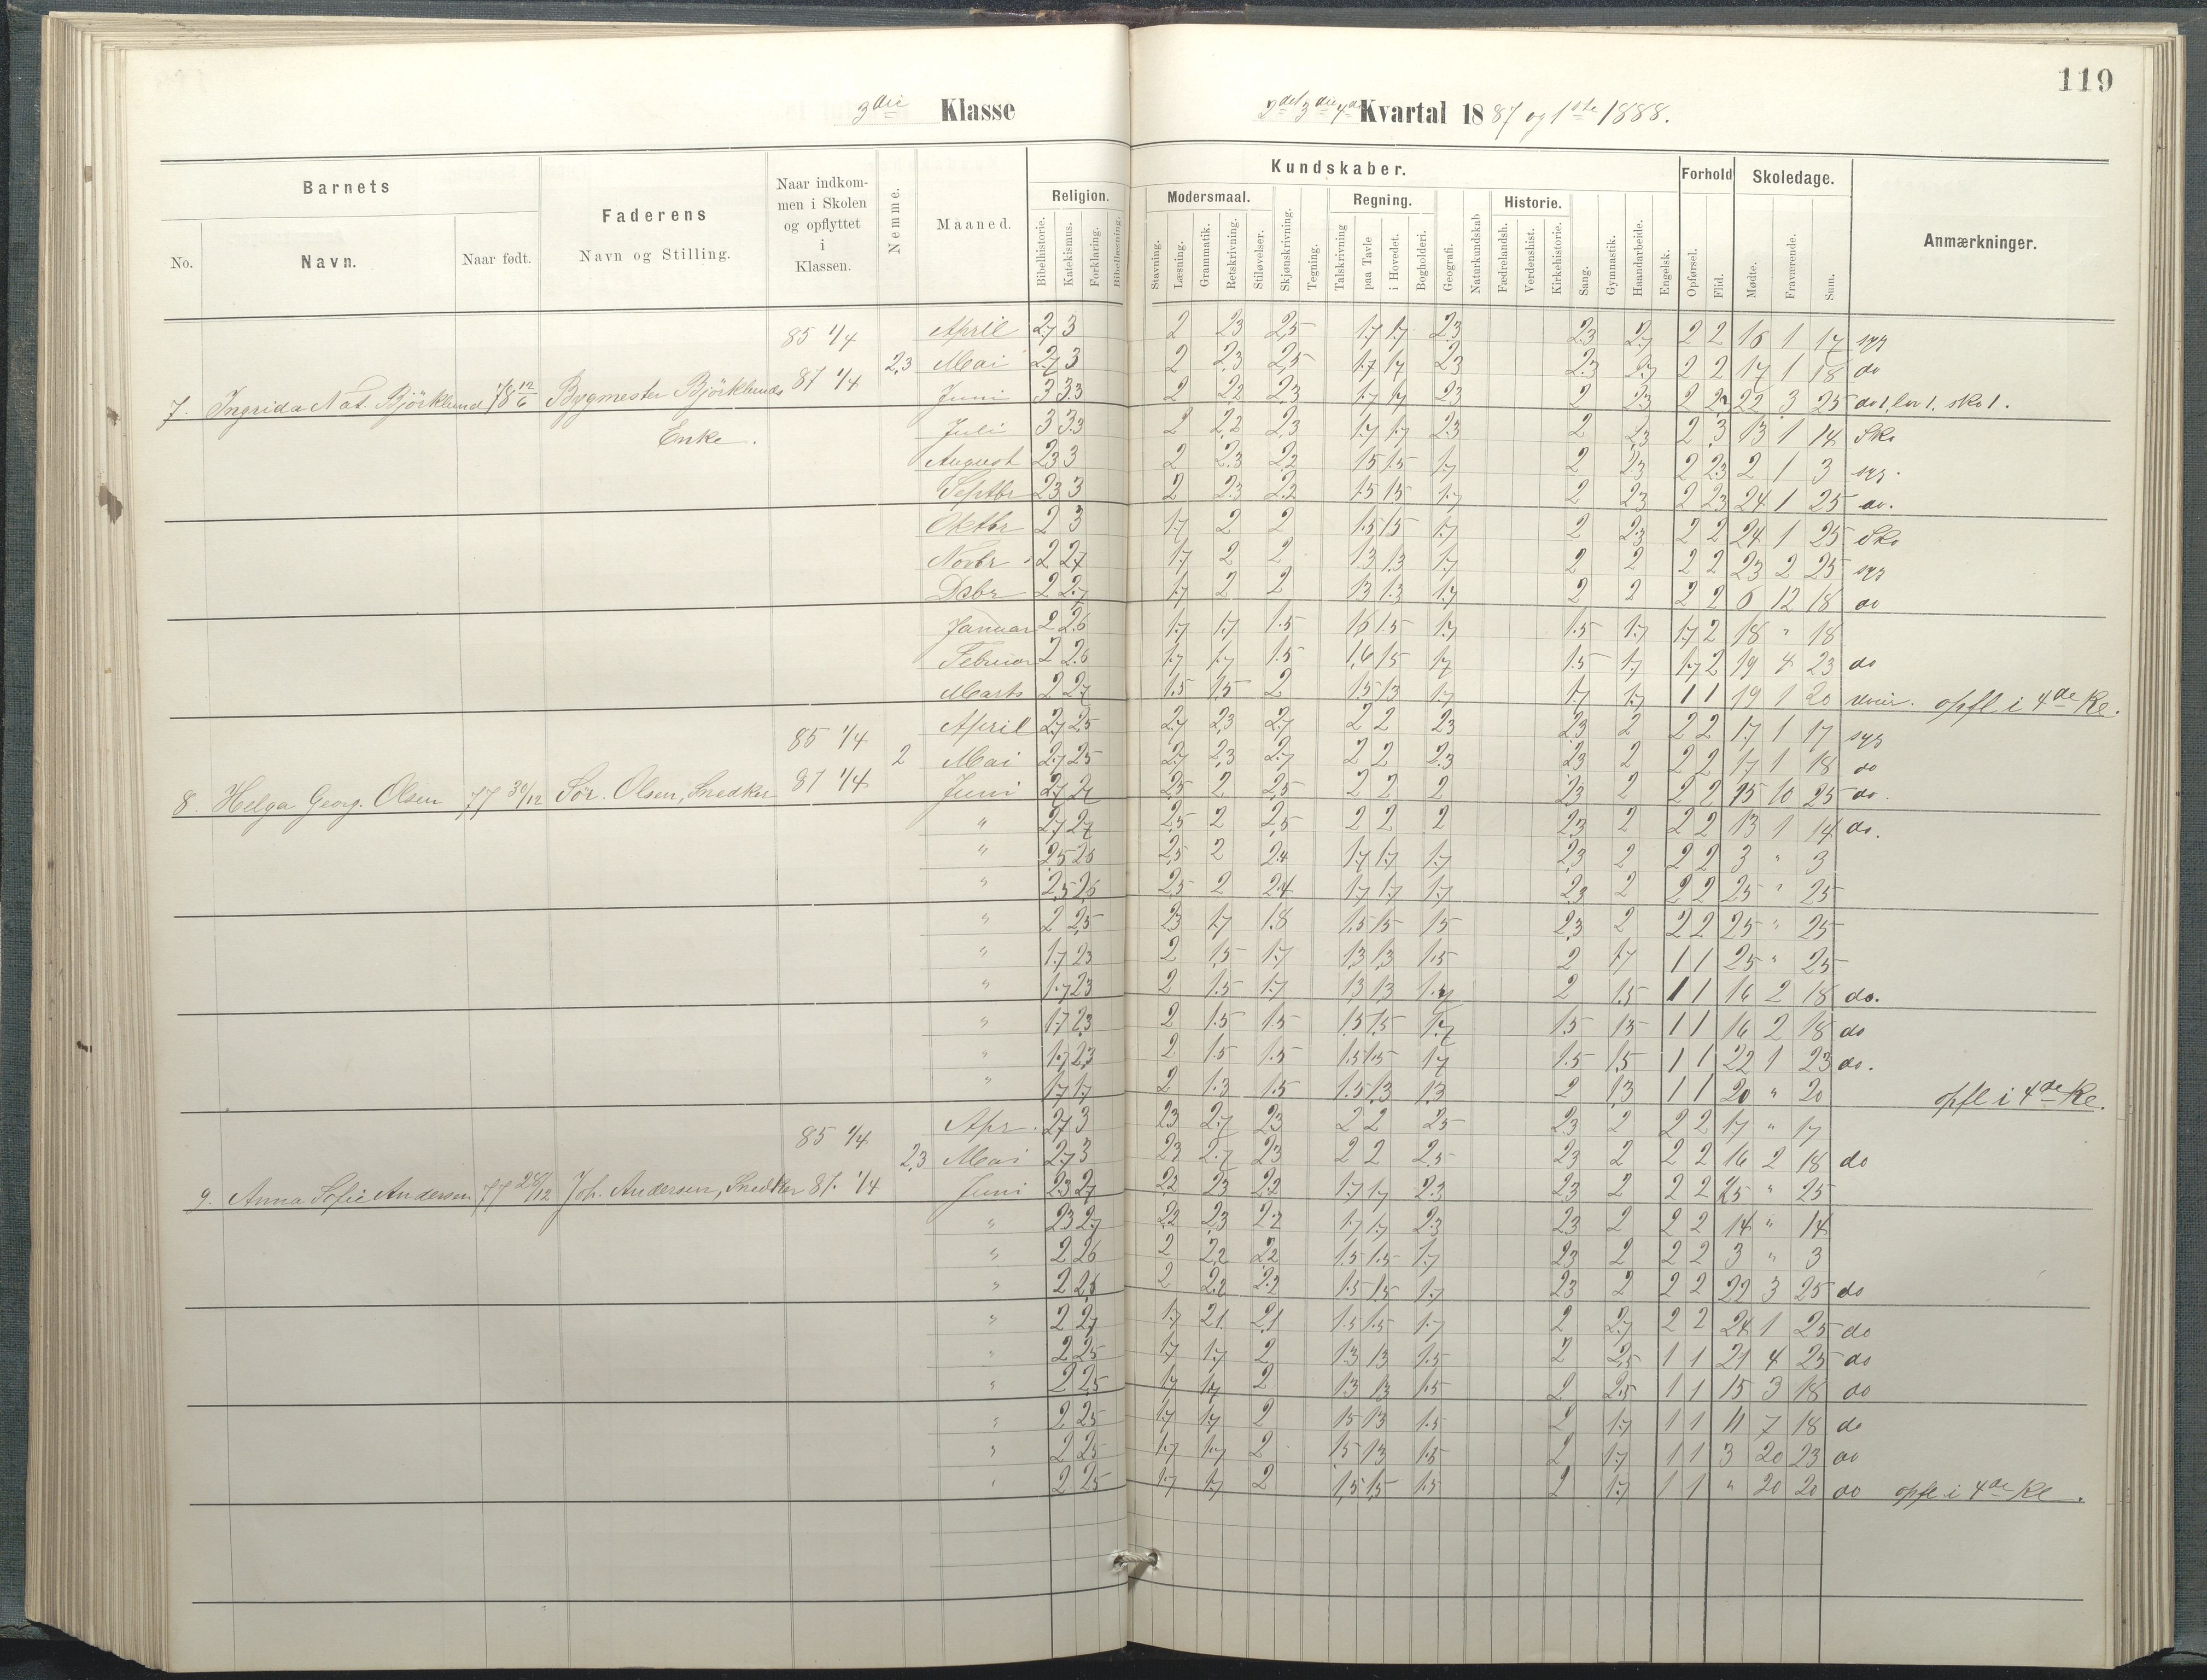 119
3die Klasse
2det 3die 4de Kvartal 1887 og 1ste 1888.
Barnets
Faderens
Naar indkommen i Skolen og opflyttet i Klassen.
Nemme.
Maaned.
Kundskaber.
Forhold
Skoledage.
Anmærkninger.
No. Navn. Naar født. Navn og Stilling.
Religion. Modersmaal. Regning. Historie.
Bibelhistorie. Katekismus. Forklaring. Bibellæsning. Stavning. Læsning. Grammatik. Retskrivning. Stiløvelser. Skjønskrivning. Tegning. Talskrivning paa Tavle i Hovedet. Bogholderi. Geografi. Naturkundskab Fædrelandsh. Verdenshist. Kirkehistorie. Sang. Gymnastik. Haandarbeide. Engelsk. Opførsel. Flid. Mødte. Fraværende. Sum.
85 1/4 April 2.7 3 2 2.3 2,5 1.7 1.7 2.3 2.3 2.7 2 2 16 1 17 syg
2,3 Mai 2.7 3 2 2,3 2,5 1.7 1.7 2.3 2.3 2.7 2 2 17 1 18 do
7. Ingrida Nat. Björklund 78 12/6 Bygmester Björklunds 87 1/4 Juni 3 3.3 2 2,2 2,3 1.7 1.7 2.3 2 2.3 2 2.3 22 3 25 do 1, lov 1, sko 1.
Enke. Juli 3 3.3 2 2,2 2,3 1.7 1.7 2.3 2 2,3 2 3 13 1 14 Sko
August 2.3 3 2 2.3 2.2 1.5 1.5 1.7 2 2.3 2 2.3 2 1 3 syg.
Septbr 2.3 3 2 2.3 2.2 1.5 1.5 1.7 2 2.3 2 2.3 24 1 25 do.
Oktbr 2 3 1.7 2 2 1.5 1.5 1.7 2 2.3 2 2 24 1 25 Sko
Novbr 2 2.7 1.7 2 2 1.3 1.3 1.7 2 2 2 2 23 2 25 syg
Dsbr 2 2.7 1.7 2 2 1.3 1.3 1.7 2 2 2 2 6 12 18 do
Januar 2 2.6 1.7 1.7 1.5 1.6 1.5 1.7 1.5 1.7 1.7 2 18 " 18
Februar 2 2.6 1.7 1.7 1.5 1,6 1.5 1.7 1.5 1.7 1.7 2 19 4 23 do
Marts 2 2.7 1.5 1.5 2 1.5 1.3 1.7 1.7 1.7 1 1 19 1 20 opfl i 4de Kl.
85 1/4 April 2.7 2.5 2.7 2.3 2.7 2 2 2.3 2.3 2 2 2 17 1 17 syg
2 Mai 2.7 2.5 2.7 2.3 2.7 2 2 2.3 2.3 2 2 2 17 1 18 do
8. Helga Georg. Olsen 77 30/12 Sør. Olsen, Snedker 87 1/4 Juni 2.7 2.7 2.5 2 2,5 2 2 2 2.3 2 2 2 15 10 25 do.
" 2.7 2.7 2,5 2 2,5 2 2 2 2.3 2 2 2 13 1 14 do.
" 2.5 2.5 2,5 2 2.4 1.7 1.7 1.7 2.3 2 2 2 3 " 3
" 2,5 2,6 2.5 2 2.4 1.7 1.7 1.7 2.3 2 2 2 25 " 25
" 2 2,5 2.3 1.7 1.8 1.5 1.5 1.5 2.3 2 2 2 25 " 25
" 1.7 2.3 2 1.5 1.7 1.3 1.3 1.5 2 1.7 1 1 25 " 25
" 1.7 2.3 2 1.5 1.7 1.3 1.3 1.7 2 1.5 1 1 16 2 18 do.
" 1.7 2.3 2 1.5 1.5 1.5 1.5 1.7 1.5 1.5 1 1 16 2 18 do
" 1.7 2.3 2 1.5 1.5 1.5 1.5 1.7 1.5 1.5 1 1 22 1 23 do.
" 1.7 1.7 2 1.3 1.5 1.5 1.3 1.3 2 1.3 1 1 20 " 20 opfl i 4de Kl.
85 1/4 Apr. 2.7 3 2.3 2.7 2.3 2 2 2.5 2.3 2 2 2 17 " 17
2,3 Mai 2.7 3 2.3 2.7 2.3 2 2 2.5 2.3 2 2 2 16 2 18 do
9. Anna Sofie Andersen 77 28/12 Joh. Andersen, Snedker 87. 1/4 Juni 2.3 2.7 2.2 2.3 2.2 1.7 1.7 2.3 2.3 2 2 2 25 " 25
" 2.3 2.7 2.2 2.3 2.2 1.7 1.7 2.3 2.3 2 2 2 14 " 14
" 2 2.6 2 2.2 2.2 1.5 1.5 1.7 2.3 2 2 2 3 " 3
" 2 2.6 2 2.2 2.2 1.5 1.5 1.7 2.3 2 2 2 22 3 25 do
" 2 2.7 1.7 2.1 2.1 1.5 1.5 1.7 2 2.7 2 2 24 1 25 do
" 2 2.5 1.7 1.7 2 1.3 1.3 1.5 2 2.5 1 1 21 4 25 do
" 2 2.5 1.7 1.7 2 1.3 1.3 1.5 2 2.5 1 1 15 3 18 do
" 2 2.5 1.7 1.7 2 1.5 1.3 1.5 2 1.7 1 1 11 7 18 do
" 2 2.5 1.7 1.7 2 1.5 1.3 1.5 2 1.7 1 1 3 20 23 do
" 2 2.5 1.7 1.7 2 1.5 1.5 1.5 2 1.7 1 1 " 20 20 do opfl i 4de Kl.